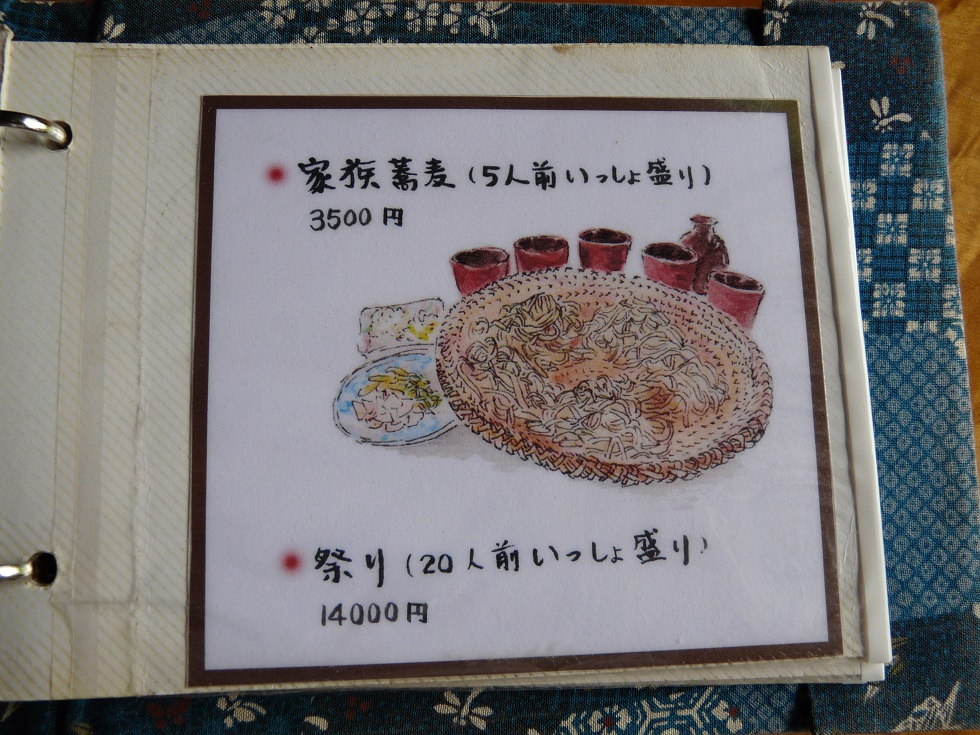 家族蕎麦(5人前いっしょ盛り)
3500円
祭り(20人前いっしょ盛り)
14000円